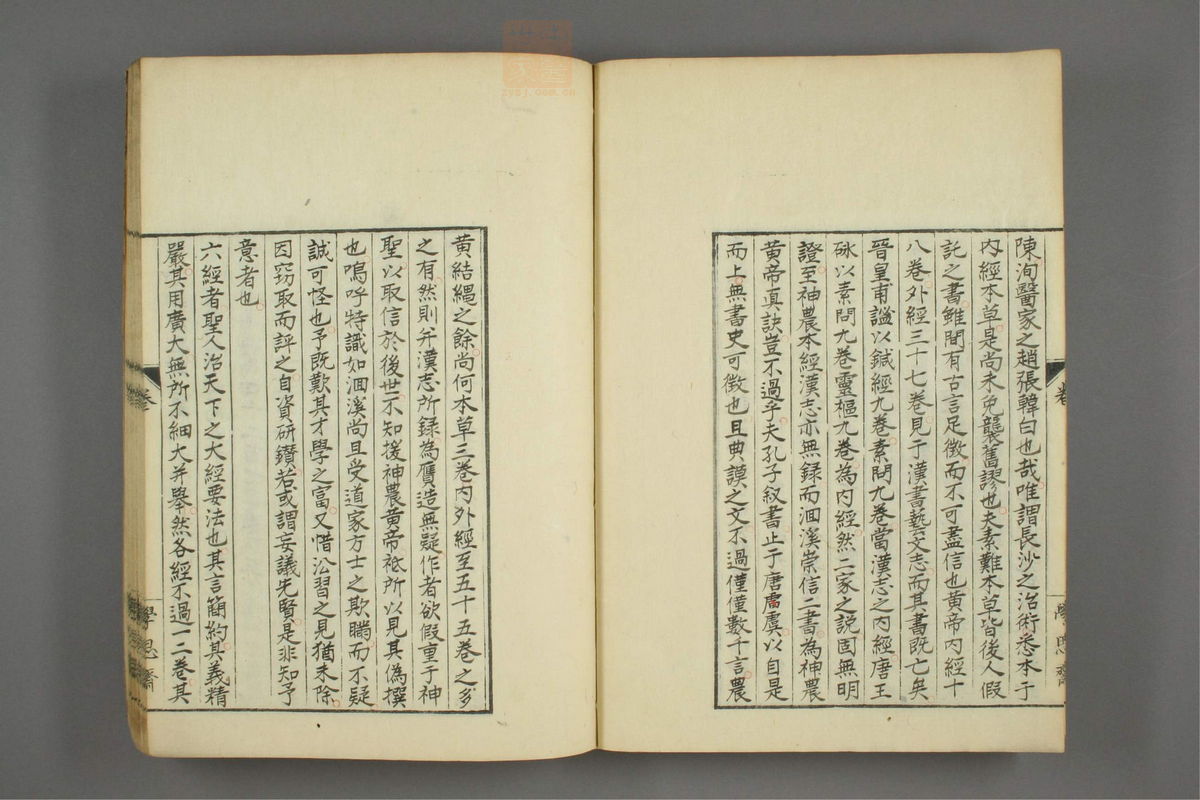 陳洵醫家之趙張韓白也哉唯謂長沙之治術悉本于
内經本草是尚未免襲舊謬也夫素難本草皆後人假
託之書雖間有古言足徴而不可盡信也黄帝内經十
八卷外經三十七卷見于漢書藝文志而其書既亡矣
晉皇甫謐以鍼經九卷素問九卷當漢志之内經唐王
砅以素問九卷靈樞九卷為内經然二家之説固無明
證至神農本經漢志亦無録而洄溪崇信二書為神農
黄帝眞訣豈不過乎夫孔子叙書止于唐虞以自是
而上無書史可徴也且典謨之文不過僅僅數千言農
卷
學思齋
黄結繩之餘尚何本草三卷内外經至五十五卷之多
之有然則弁漢志所録為贋造無疑作者欲假重于神
聖以取信於後世不知援神農黄帝祗所以見其偽撰
也嗚呼特識如洄溪尚且受道家方士之欺瞞而不疑
誠可怪也予既歎其才學之富又惜沿習之見猶未除
因竊取而評之自資研鑽若或謂妄議先賢是非知予
意者也
六經者聖人治天下之大經要法也其言簡約其義精
嚴其用廣大無所不細大并舉然各經不過一二卷其
卷
學思齋
zysj.com.cn